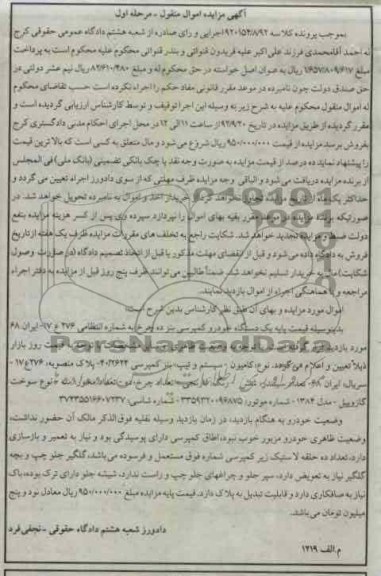 آگهی مزایده اموال منقول - مرحله اول
بموجب پرونده کلاسه ۹۲۰۱۵۴/۸/۹۲ اجرایی و رای صادره از شعبه هشتم دادگاه عمومی حقوقی کرج
له احمد آقامحمدی فرزند علی اکبر علیه فریدون قنواتی و بندر قنواتی محکوم علیه محکوم است به پرداخت
مبلغ ۱۶۵۷/۸۰۹/۶۱۷ ریال به عنوان اصل خواسته در حق محکوم له و مبلغ ۸۲/۶۱۰/۴۸۰ ریال نیم عشر دولتی در
حق صندوق دولت چون نامبرده در موعد مقرر قانونی مفاد حکم را اجراء نکرده است حسب تقاضای محکوم
له اموال منقول محکوم علیه به شرح زیر به وسیله این اجرا توقیف و توسط کارشناس ارزیابی گردیده است و
مقرر گردیده از طریق مزایده در تاریخ ۹۲/۹/۲۰ از ساعت ۱۱ الی ۱۲ در محل اجرای احکام مدنی دادگستری کرج
بفروش برسد مزایده از قیمت ۹۵۰/۰۰۰/۰۰۰ ریال شروع می شود و مال متعلق به کسی است که بالاترین قیمت
را پیشنهاد نماید ده درصد از قیمت مزایده به صورت وجه نقد یا چک بانکی تضمینی (بانک ملی) فی المجلس
از برنده مزایده دریافت می شود و الباقی وجه مزایده ظرف مهلتی که از سوی دادورز اجراء تعیین می گردد و
حداکثر یکماه از تاریخ مزایده تجاوز نخواهد کرد از خریدار اخذ و اموال به نامبرده تحویل خواهد شد. در
صورتیکه برنده مزایده در موعد مقرر بقیه بهای اموال را نپردازد سپرده وی پس از کسر هزینه مزایده بنفع
دولت ضبط و مزایده تجدید خواهد شد. شکایت راجع به تخلف های مقررات مزایده ظرف یک هفته از تاریخ
فروش به دادگاه داده می شود و قبل از انقضای مهلت مذکور یا قبل از اتخاذ تصمیم دادگاه (در صورت وصول
شکایت) مال به خریدار تسلیم نخواهد شد. ضمنا طالبین می توانند ظرف پنج روز قبل از مزایده به دفتر اجراء
مراجعه و با هماهنگی اجراء از اموال بازدید نمایند.
اموال مورد مزایده و بهای آن طبق نظر کارشناس بدین شرح است:
بدینوسیله قیمت پایه یک دستگاه خودرو کمپرسی بنز ده چرخ به شماره انتظامی ۲۷۶ ع ۱۷- ایران ۶۸
مورد بازدید قیمت روز بازار
ذیلا تعیین و اعلام می گردد. نوع: کامیون - سیستم و تیپ: بنز کمپرسی ۴۰/۲۶۲۴- پلاک منصوبه: ۲۷۶ ع ۱۷-
سریال: ایران ۶۸- تعداد سیلندر: شش - رنگ: نارنجی - تعداد چرخ: ده - نوع سوخت
گازوییل - مدل ۱۳۸۴ - شماره موتور: ۳۳۵۹۳۲۰۰۹۶۸۷۵ - شماره شاسی: ۳۷۴۳۵۵۱۶۶۰۷۲۳۷
وضعیت خودرو به هنگام بازدید: در زمان بازدید وسیله نقلیه فوق الذکر مالک آن حضور نداشت.
وضعیت ظاهری خودرو مزبور خوب نبود، اطاق کمپرسی دارای پوسیدگی بود و نیاز به تعمیر و بازسازی
دارد، تعداد ده حلقه لاستیک زیر کمپرسی شماره فوق مستعمل و فرسوده می باشد، گلگیر جلو چپ و بچه
گلگیر نیاز به تعویض دارد، سپر جلو و چراغهای جلو چپ و راست ندارد، شیشه جلو دارای ترک بوده، باک
نیاز به صافکاری دارد و قابلیت تبدیل به پلاک دارد. قیمت پایه مزایده مبلغ ۹۵۰/۰۰۰/۰۰۰ ریال معادل نود و پنج
میلیون تومان می باشد.
دادورز شعبه هشتم دادگاه حقوقی - نجفی فرد
م.الف ۱۲۱۹
ParsNamadData